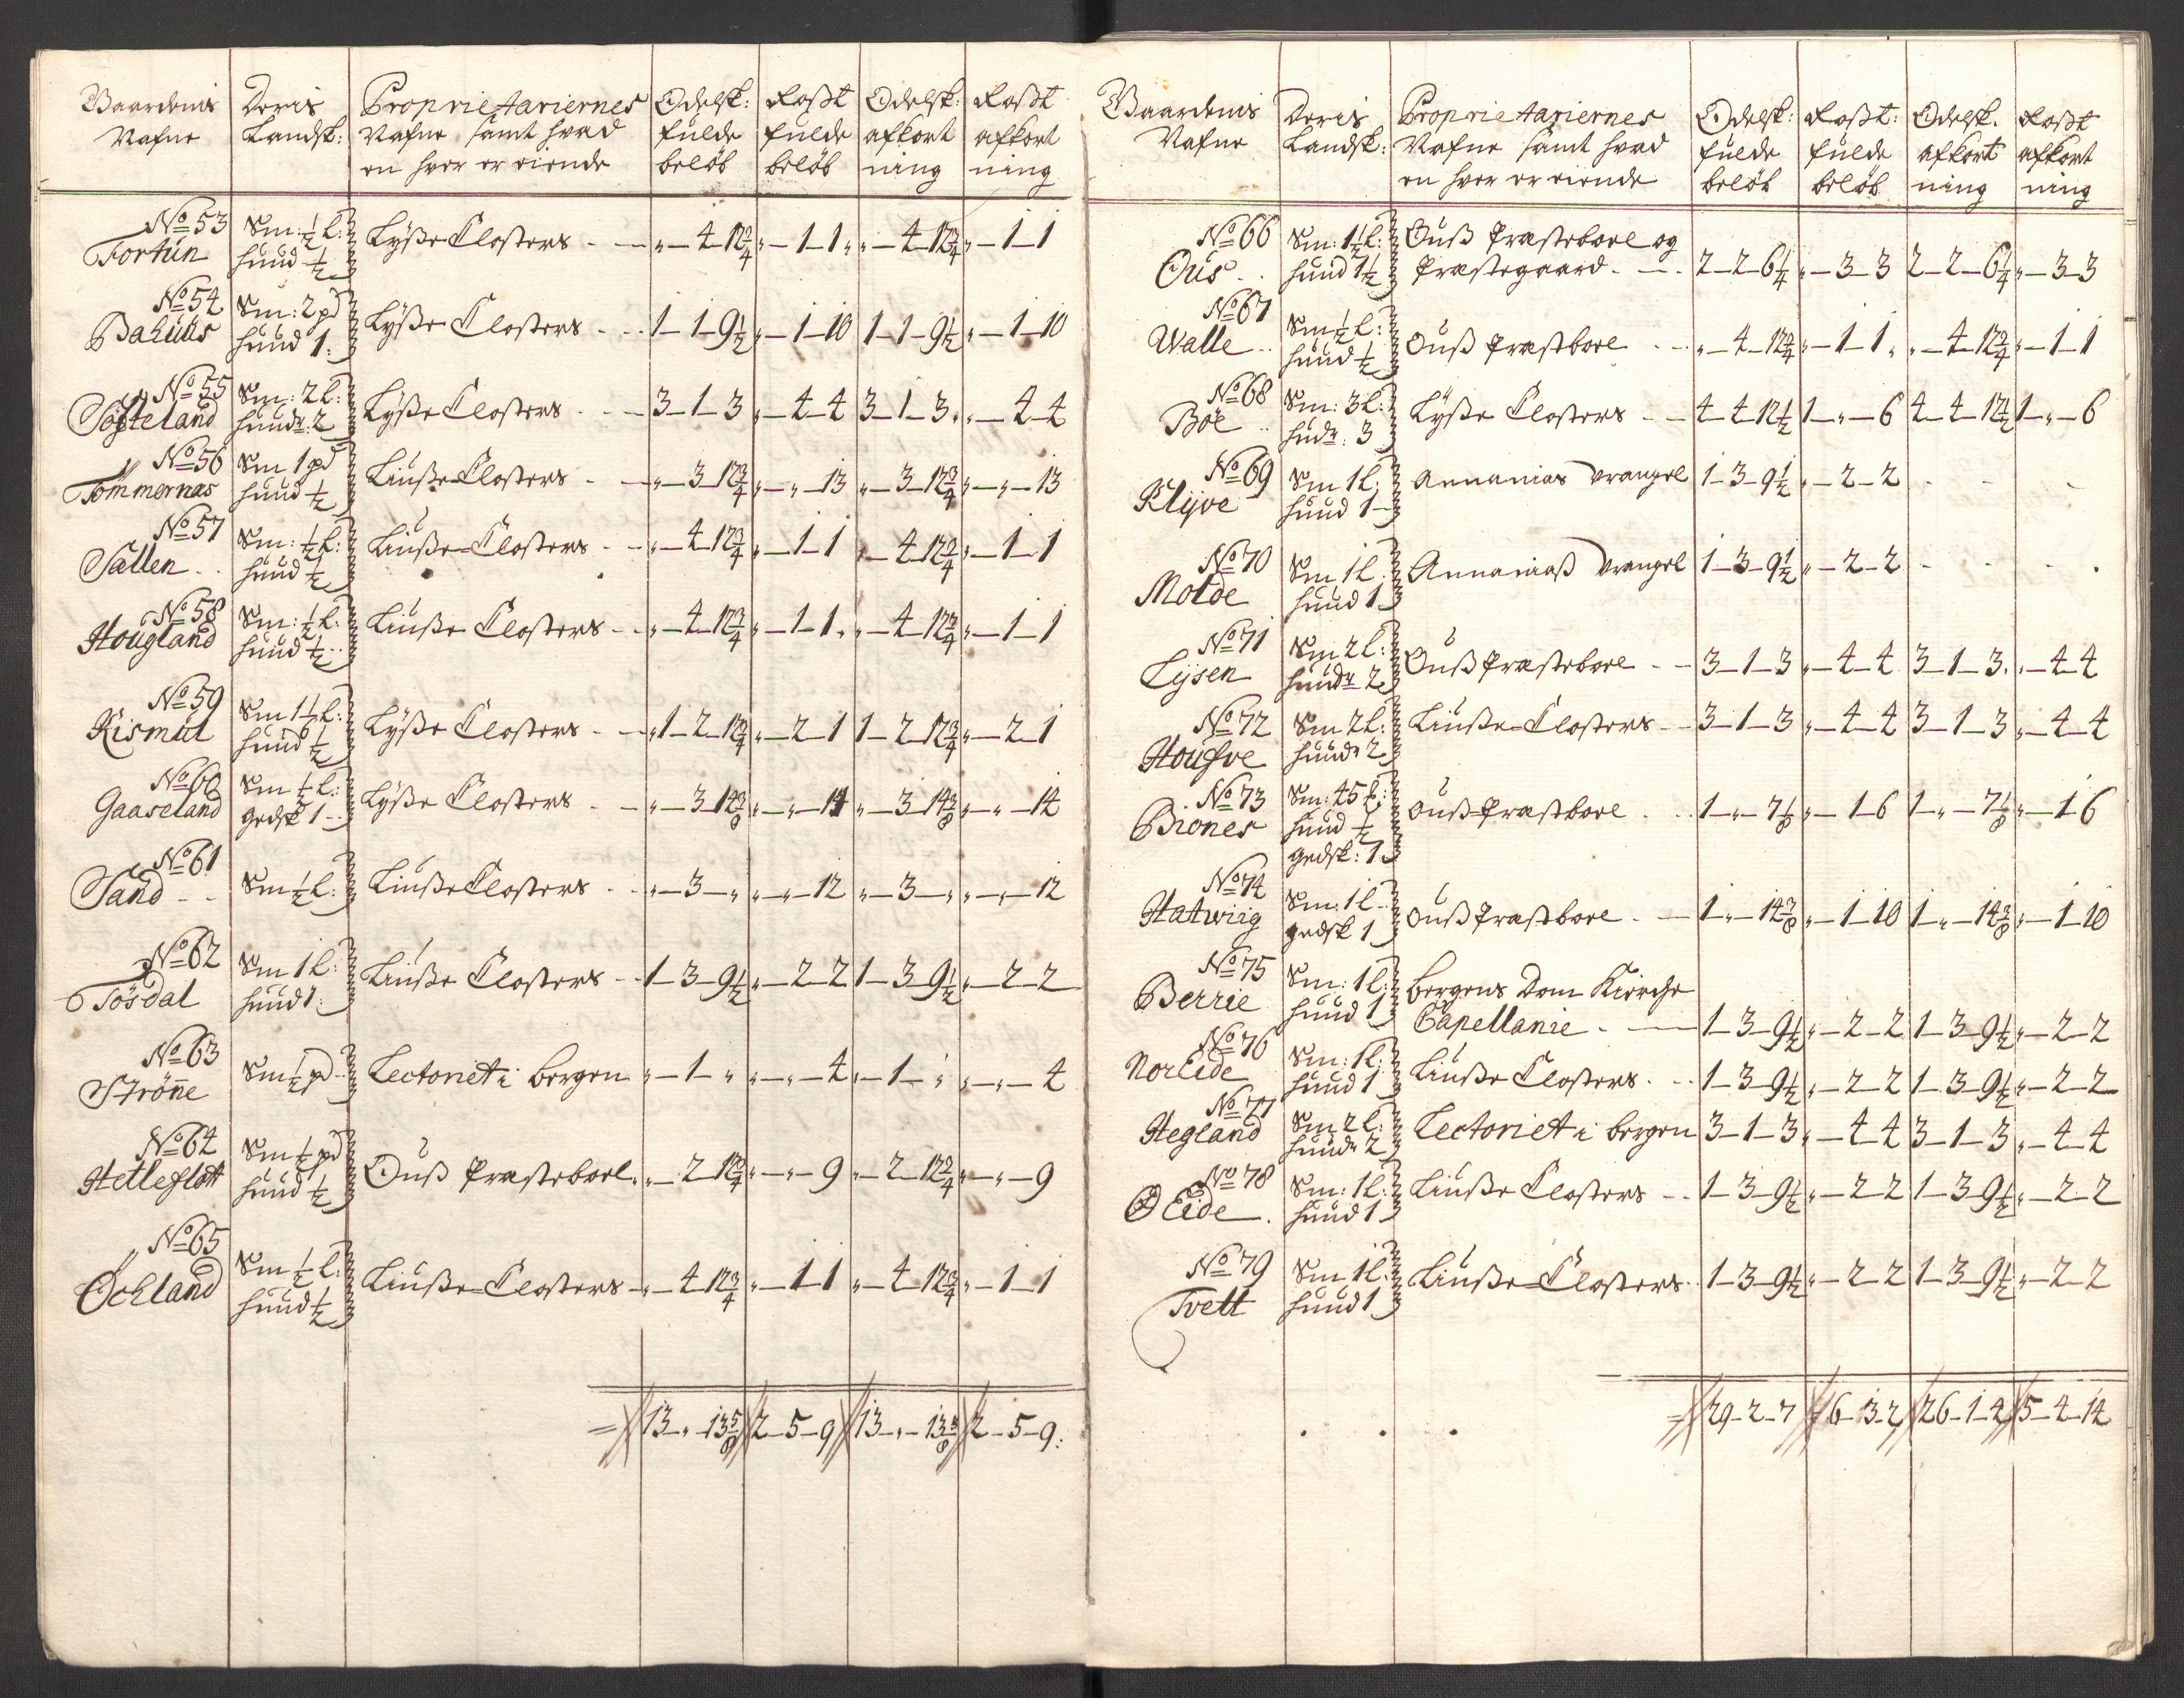 Gaardenis Nafne | Deris Landsk: | Proprietariernes Nafne samt hvad en hver er eiende | Odelsk: fulde beløb | Roßt fulde beløb | Odelsk: afkortning | Roßt afkortning
No 53 Fortun | Sm: ½ l: huud ½ | Lyße Closters | „-4-12¾ | „-1-1 | „-4-12¾ | „-1-1
No 54 Bahuus | Sm: 2 pd huud 1: | Lyße Closters | 1-1-9½ | „-1-10 | 1-1-9½ | „-1-10
No 55 Søfteland | Sm: 2 l: hudr: 2 | Lyße Closters | 3-1-3 | „-4-4 | 3-1-3 | „-4-4
No 56 Tömmernas | Sm 1 pd huud ½ | Liuße Closters | „-3-12¾ | „-„-13 | „-3-12¾ | „-„-13
No 57 Sallen | Sm: ½ l: huud ½ | Liuße Closters | „-4-12¾ | „-1-1 | „-4-12¾ | „-1-1
No 58 Hougland | Sm: ½ l: huud ½ | Liuße Closters | „-4-12¾ | „-1-1 | „-4-12¾ | „-1-1
No 59 Kismul | Sm 1½ l: huud ½ | Lyße Closters | 1-2-12¾ | „-2-1 | 1-2-12¾ | „-2-1
No 60 Gaaseland | Sm ½ l: gedsk 1 | Lyße Closters | „-3-14⅜ | „-„-14 | „-3-14⅜ | „-„-14
No 61 Sand | Sm ½ l: | Liuße Closters | „-3-„ | „-„-12 | „-3-„ | „-„-12
No 62 Tøsdal | Sm 1 l: huud 1: | Liuße Closters | 1-3-9½ | „-2-2 | 1-3-9½ | „-2-2
No 63 Ströne | Sm ½ pd | Lectoriet i bergen | „-1-„ | „-„-4 | „-1-„ | „-„-4
No 64 Hetleflot | Sm ½ pd huud ½ | Ouß Præsteboel | „-2-12¾ | „-„-9 | „-2-12¾ | „-„-9
No 65 Öckland | Sm ½ l: huud ½ | Liuße Closters | „-4-12¾ | „-1-1 | „-4-12¾ | „-1-1
13-„-13⅝ | 2-5-9 | 13-„-13⅝ | 2-5-9:
Gaardenis Nafne | Deris Landsk: | Proprietariernes Nafne samt hvad en hver er eiende | Odelsk: fulde beløb | Roßt: fulde beløb | Odelsk. afkortning | Roßt afkortning
No 66 Ous | Sm: 1½ l: huud 1½ | Ouß Præsteboel og Præstegaard | 2-2-6¼ | „-3-3 | 2-2-6¼ | „-3-3
No 67 Walle | Sm ½ l: huud ½ | Ouß Præstboel | „-4-12¾ | „-1-1 | „-4-12¾ | „-1-1
No 68 Böe | Sm: 3 l: hudr: 3 | Lyße Closters | 4-4-12½ | 1-„-6 | 4-4-12½ | 1-„-6
No 69 Klyve | Sm 1 l: huud 1 | Annanias Vrangel | 1-3-9½ | „-2-2 | - | -
No 70 Molde | Sm 1 l: huud 1 | Annaniaß Vrangel | 1-3-9½ | „-2-2 | - | -
No 71 Lysen | Sm 2 l: huudr 2 | Ouß Præsteboel | 3-1-3 | „-4-4 | 3-1-3 | „-4-4
No 72 Housve | Sm 2 l: huudr 2 | Liuße Closters | 3-1-3 | „-4-4 | 3-1-3 | „-4-4
No 73 Biones | Sm: 45 [...] huud ½ gedsk: 1 | Ouß Præstboel | 1-„-7⅛ | „-1-6 | 1-„-7⅛ | „-1-6
No 74 Hatwiig | Sm: 1 l gedsk 1 | Ouß Præstboel | 1-„-14⅜ | „-1-10 | 1-„-14⅜ | „-1-10
No 75 Berrie | Sm: 1 l: huud 1 | bergens Dom Kierche Capellanie | 1-3-9½ | „-2-2 | 1-3-9½ | „-2-2
No 76 Nor Eide | Sm: 1 l: huud 1 | Liuße Closters | 1-3-9½ | „-2-2 | 1-3-9½ | „-2-2
No 77 Hegland | Sm 2 l: huudr 2 | Lectoriet i bergen | 3-1-3 | „-4-4 | 3-1-3 | „-4-4
No 78 Ø Eide | Sm: 1 l: huud 1 | Liuße Closters | 1-3-9½ | „-2-2 | 1-3-9½ | „-2-2
No 79 Tvett | Sm 1 l: huud 1 | Liuße Closters | 1-3-9½ | „-2-2 | 1-3-9½ | „-2-2
29-2-7 | 6-3-2 | 26-1-4 | 5-4-14